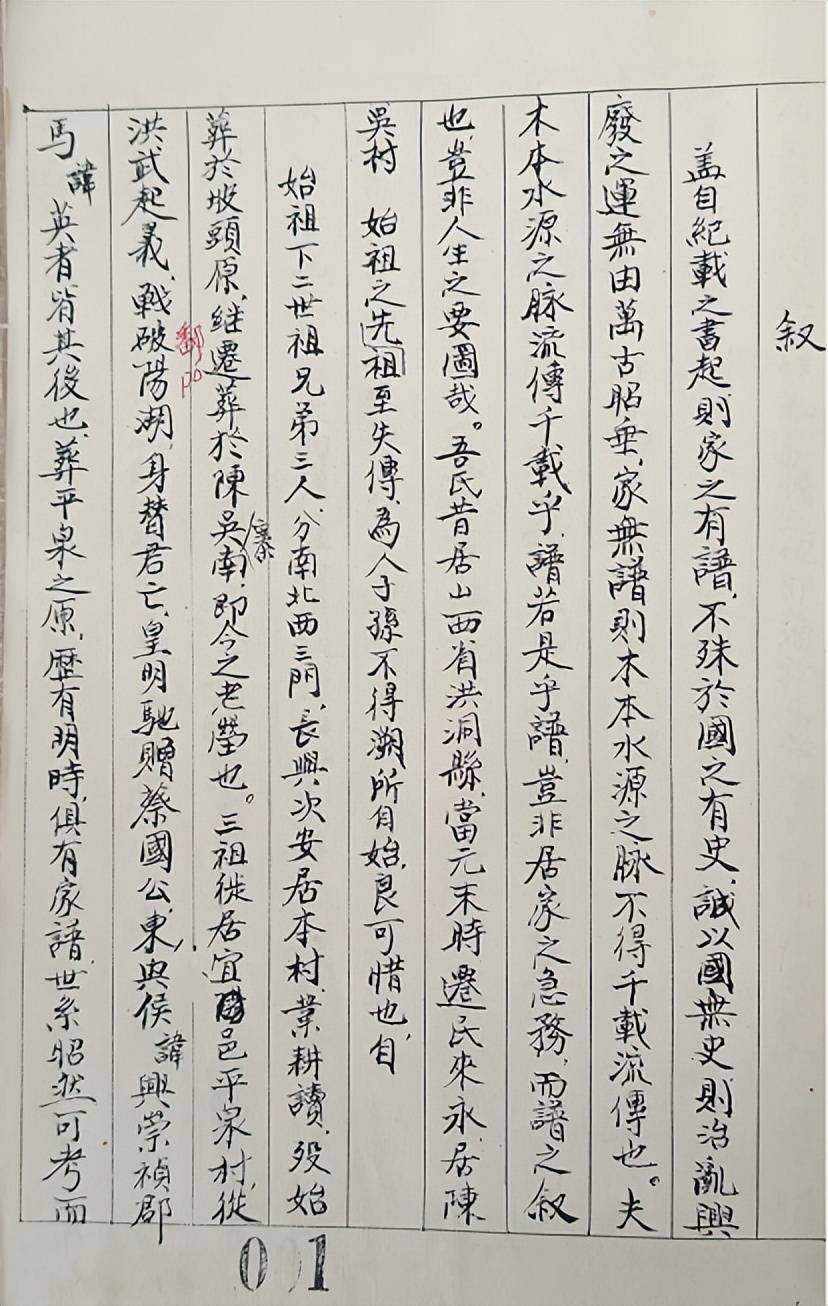 叙
盖自紀載之書起,則家之有譜,不殊於國之有史,誠以國無史則治亂興
廢之運無由萬古昭垂,家無譜則木本水源之脉不得千載流傳也。夫
木本水源之脉流傳千載乎,譜若是乎譜,豈非居家之急務,而譜之叙
也,豈非人生之要圖哉。吾氏昔居山西省洪洞縣,當元末時遷民來永,居陳
吳村 始祖之先祖至失傳,為人子孫不得溯所自始,良可惜也,自
始祖下二世祖兄弟三人,分南北西三門,長興次安居本村,業耕讀,殁始
葬於坡頭原,继遷葬於陳吳寨南,即今之老塋也。三祖徙居宜邑平泉村,從
鄱po
洪武起義,戰破陽湖,身替君亡,皇明馳贈蔡國公,東典侯諱興崇禎郡
馬諱英者皆其後也,葬平泉之原,歷有明時,俱有家譜,世系昭然可考而
001